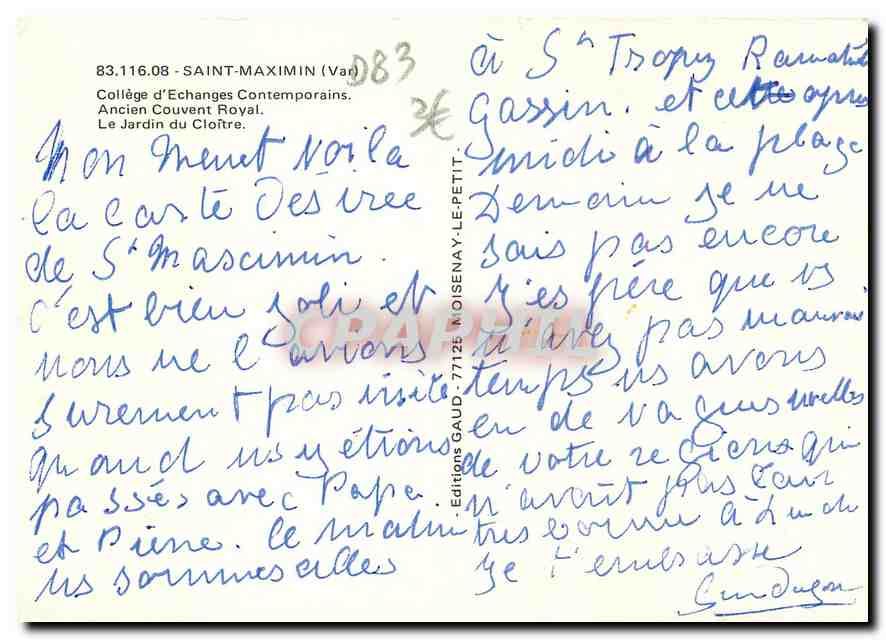 83.116.08 - SAINT-MAXIMIN (Var)
D83
Collège d'Echanges Contemporains.
Ancien Couvent Royal.
Le Jardin du Cloître.
2€
Mon Menet Voila
la carte Désirée
de St Mascimin.
C'est bien joli et
nous ne l'avions
surement pas visité
quand ns y étions
passés avec Papa
et Pierre. Ce matin
ns sommes allés
Editions GAUD - 77125 MOISENAY-LE-PETIT.
à St Tropez Ramatuelle
Gassin. et cette apres
midi à la plage
Demain je ne
sais pas encore
J'espère que vs
n'avez pas mauvais
temps ns avons
eu de vagues nvelles
de votre region qui
n'avait pas l'air
tres bonne à
je t'embrasse
CPAPHIL